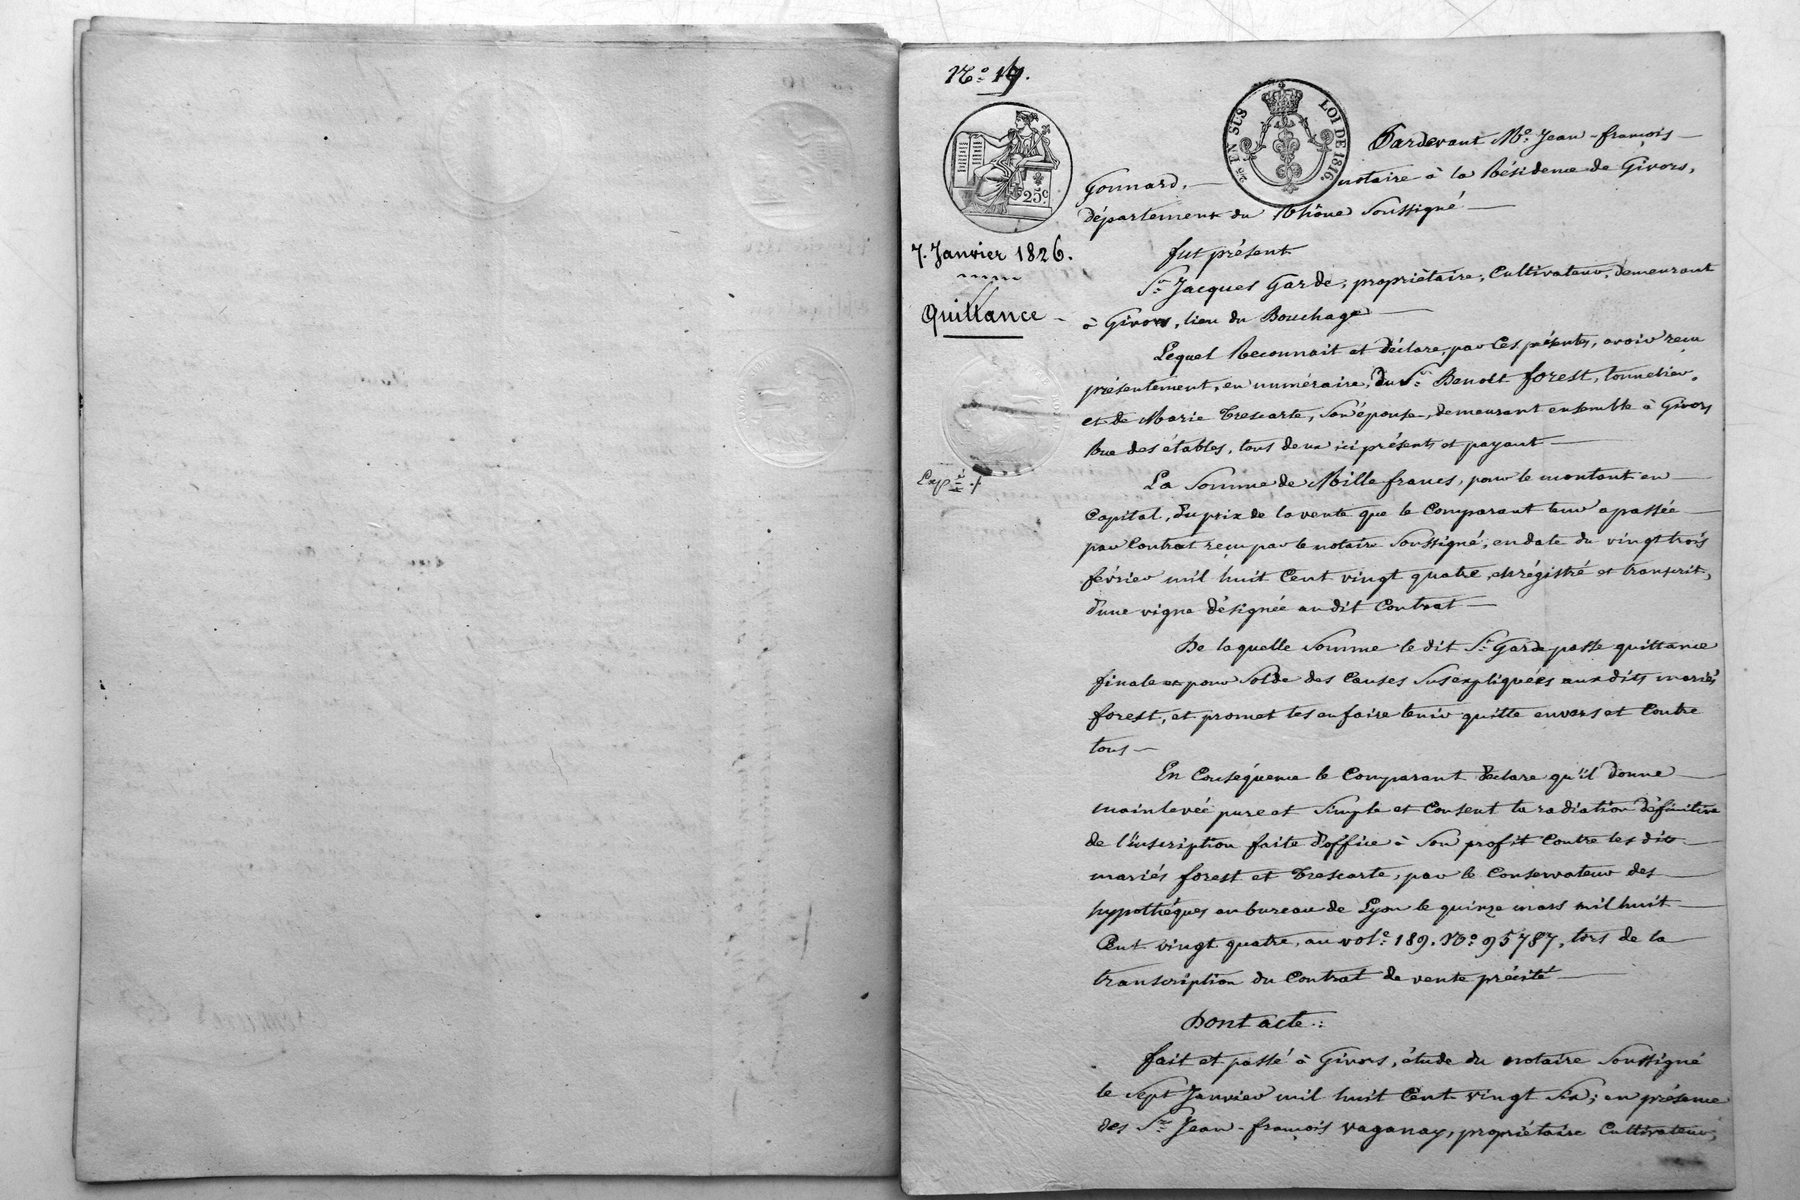 No. 19.
25c
2s EN SUS
LOI DE 1816.
7. Janvier 1826.
Quittance
Expé. f
Pardevant Me. Jean-françois
Gonnard, notaire à la Résidence de Givors,
département du Rhône Soussigné
fut présent
Sr. Jacques Garde, propriètaire, Cultivateur, demeurant
à Givors, lieu du Bouchage
Lequel Reconnait et déclare, par Ces présentes, avoir reçu
présentement, en numéraire, du Sr. Benoît forest, tonnelier,
et de Marie Trescarte, Son épouse, demeurant ensemble à Givors
Rue des étables, tous deux ici présents et payant
La Somme de Mille francs, pour le montant en
Capital, du prix de la vente que le Comparant leur a passée
par Contrat reçu par le notaire Soussigné, en date du vingt trois
février mil huit Cent vingt quatre, enrégistré et transcrit,
d'une vigne désignée au dit Contrat
De laquelle Somme le dit Sr. Garde passe quittance
finale et pour Solde des Causes Susexpliquées aux dits mariés
forest, et promet les en faire tenir quitte envers et Contre
tous
En Conséquence le Comparant déclare qu'il donne
mainlevée pure et Simple et Consent la radiation définitive
de l'inscription faite d'office à Son profit Contre les dits
mariés forest et Trescarte, par le Conservateur des
hypothèques au bureau de Lyon le quinze mars mil huit
Cent vingt quatre, au vole. 189. No. 95787, lors de la
transcription du Contrat de vente précité
Dont acte.:
fait et passé à Givors, étude du notaire Soussigné
le Sept Janvier mil huit Cent vingt Six; en présence
des Srs. Jean-françois Vaganay, propriétaire Cultivateur,